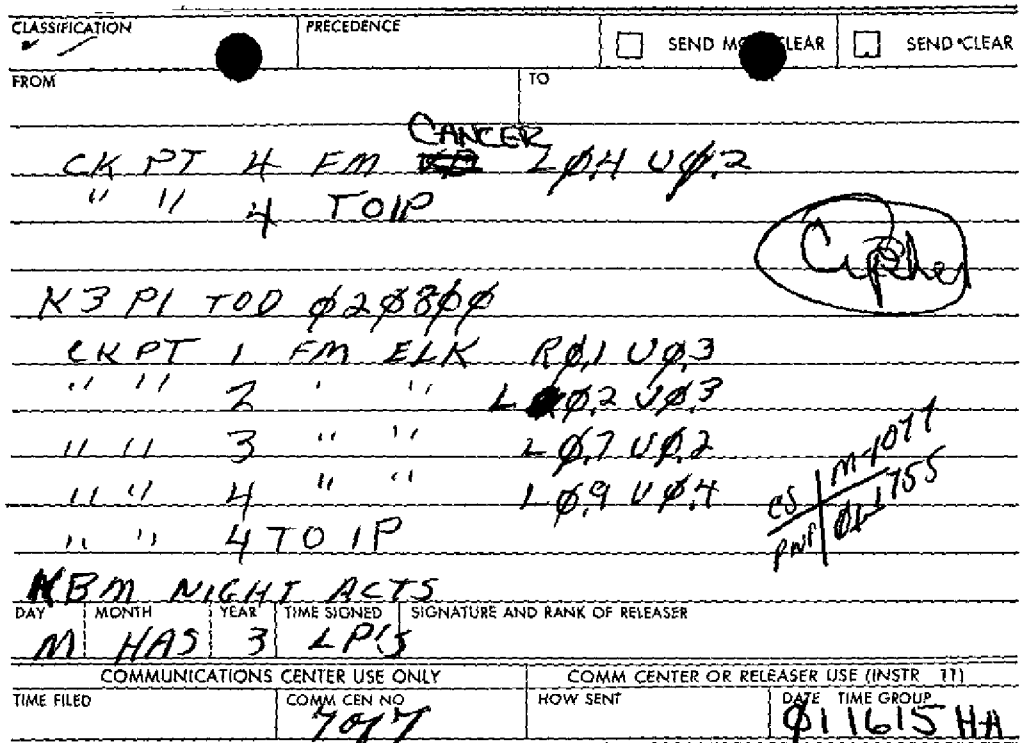 CLASSIFICATION PRECEDENCE SEND MO CLEAR SEND CLEAR
FROM TO
CANCER
CK PT 4 FM LØ.4 UØ.2
" " 4 TO IP
Cipher
K3 P1 TOD Ø2Ø8ØØ
CK PT 1 FM ELK RØ.1 UØ.3
" " 2 " " L Ø.2 UØ.3
" " 3 " " LØ.7 UØ.2
" " 4 " " LØ.9 UØ.4
CS M-1077
PNP Ø11755
" " 4 TO IP
KBM NIGHT ACTS
DAY MONTH YEAR TIME SIGNED SIGNATURE AND RANK OF RELEASER
M HAS 3 LP'S
COMMUNICATIONS CENTER USE ONLY COMM CENTER OR RELEASER USE (INSTR 11)
TIME FILED COMM CEN NO HOW SENT DATE TIME GROUP
7 of 7 Ø11615 HA